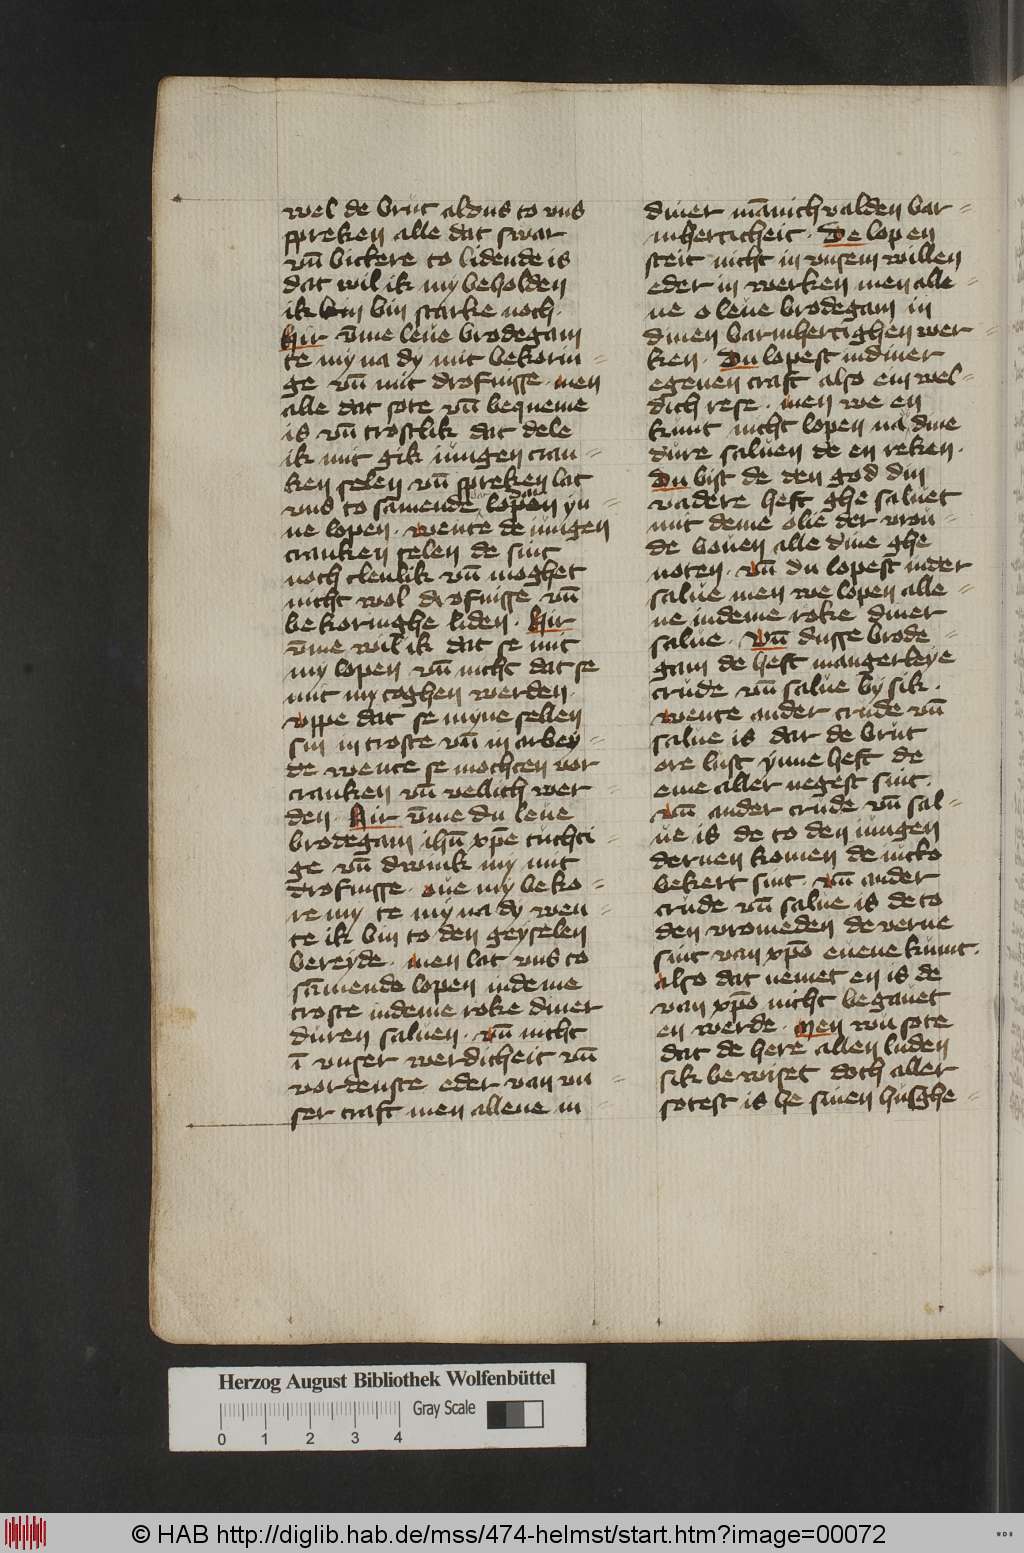 wel de brut aldus to vns
spreken alle dat swar
vn̄ bickere to lidende is
dat wil ik my beholden
ik bin starke noch.
Hir v̄me leue brodegam
te my na dy mit bekorin=
ge vn̄ mit drofnisse. men
alle dat sote vn̄ bequeme
is vn̄ trostlik dat dele
ik mit gik iungen cran=
ken selen vn̄ spreken lat
vns to samende lopen yn=
ne lopen. wente de iungen
cranken selen de sint
noch clenlik vn̄ moghet
nicht wol drofnisse vn̄
bekoringhe liden. Hir
v̄me wil ik dat se mit
my lopen vn̄ nicht dat se
mit my toghen werden.
vppe dat se myne sellen
sin in troste vn̄ in arbey=
de wente se mochten vor
cranken vn̄ vellich wer=
den. Hir v̄me du leue
brodegam ihū xp̄e tuchti=
ge vn̄ dwink my mit
drofnisse. oue my beko=
re my te my na dy wen=
te ik bin to den geyselen
bereyde. men lat vns to
sāmende lopen indeme
troste indeme roke diner
duren saluen. vn̄ nicht
ī vnser werdicheit vn̄
vordenste eder van vn=
ser craft men allene in=
diner mānichvalden bar=
mherticheit. De lopen
steit nicht in vnsem willen
eder in werken men alle=
ne o leue brodegam in
dinen barmhertighen wer=
ken. Du lopest indiner
egenen craft also ein wel=
dich rese. men we en
kunt nicht lopen na dine
dure saluen de en reken.
Du bist de den god din
vadere heft ghe saluet
mit deme olie der vrou=
de bouen alle dine ghe
noten. vn̄ du lopest inder
salue men we lopen alle=
ne indeme roke diner
salue. Vn̄ dusse brode=
gam de heft mangerleye
crude vn̄ salue by sik.
wente ander crude vn̄
salue is dar de brut
ore lust ynne heft de
eme aller negest sint.
vn̄ ander crude vn̄ sal=
ue is de to den iungen
dernen komen de nicko
bekert sint. vn̄ ander
crude vn̄ salue is de to
den vromeden de verne
sint van xp̄o euene kumt.
also dat nemet en is de
van xp̄o nicht begauet
en werde. Men wu sote
dat de here allen luden
sik bewiset doch aller
sotest is he sinen husghe=
Herzog August Bibliothek Wolfenbüttel
Gray Scale
0 1 2 3 4
© HAB http://diglib.hab.de/mss/474-helmst/start.htm?image=00072